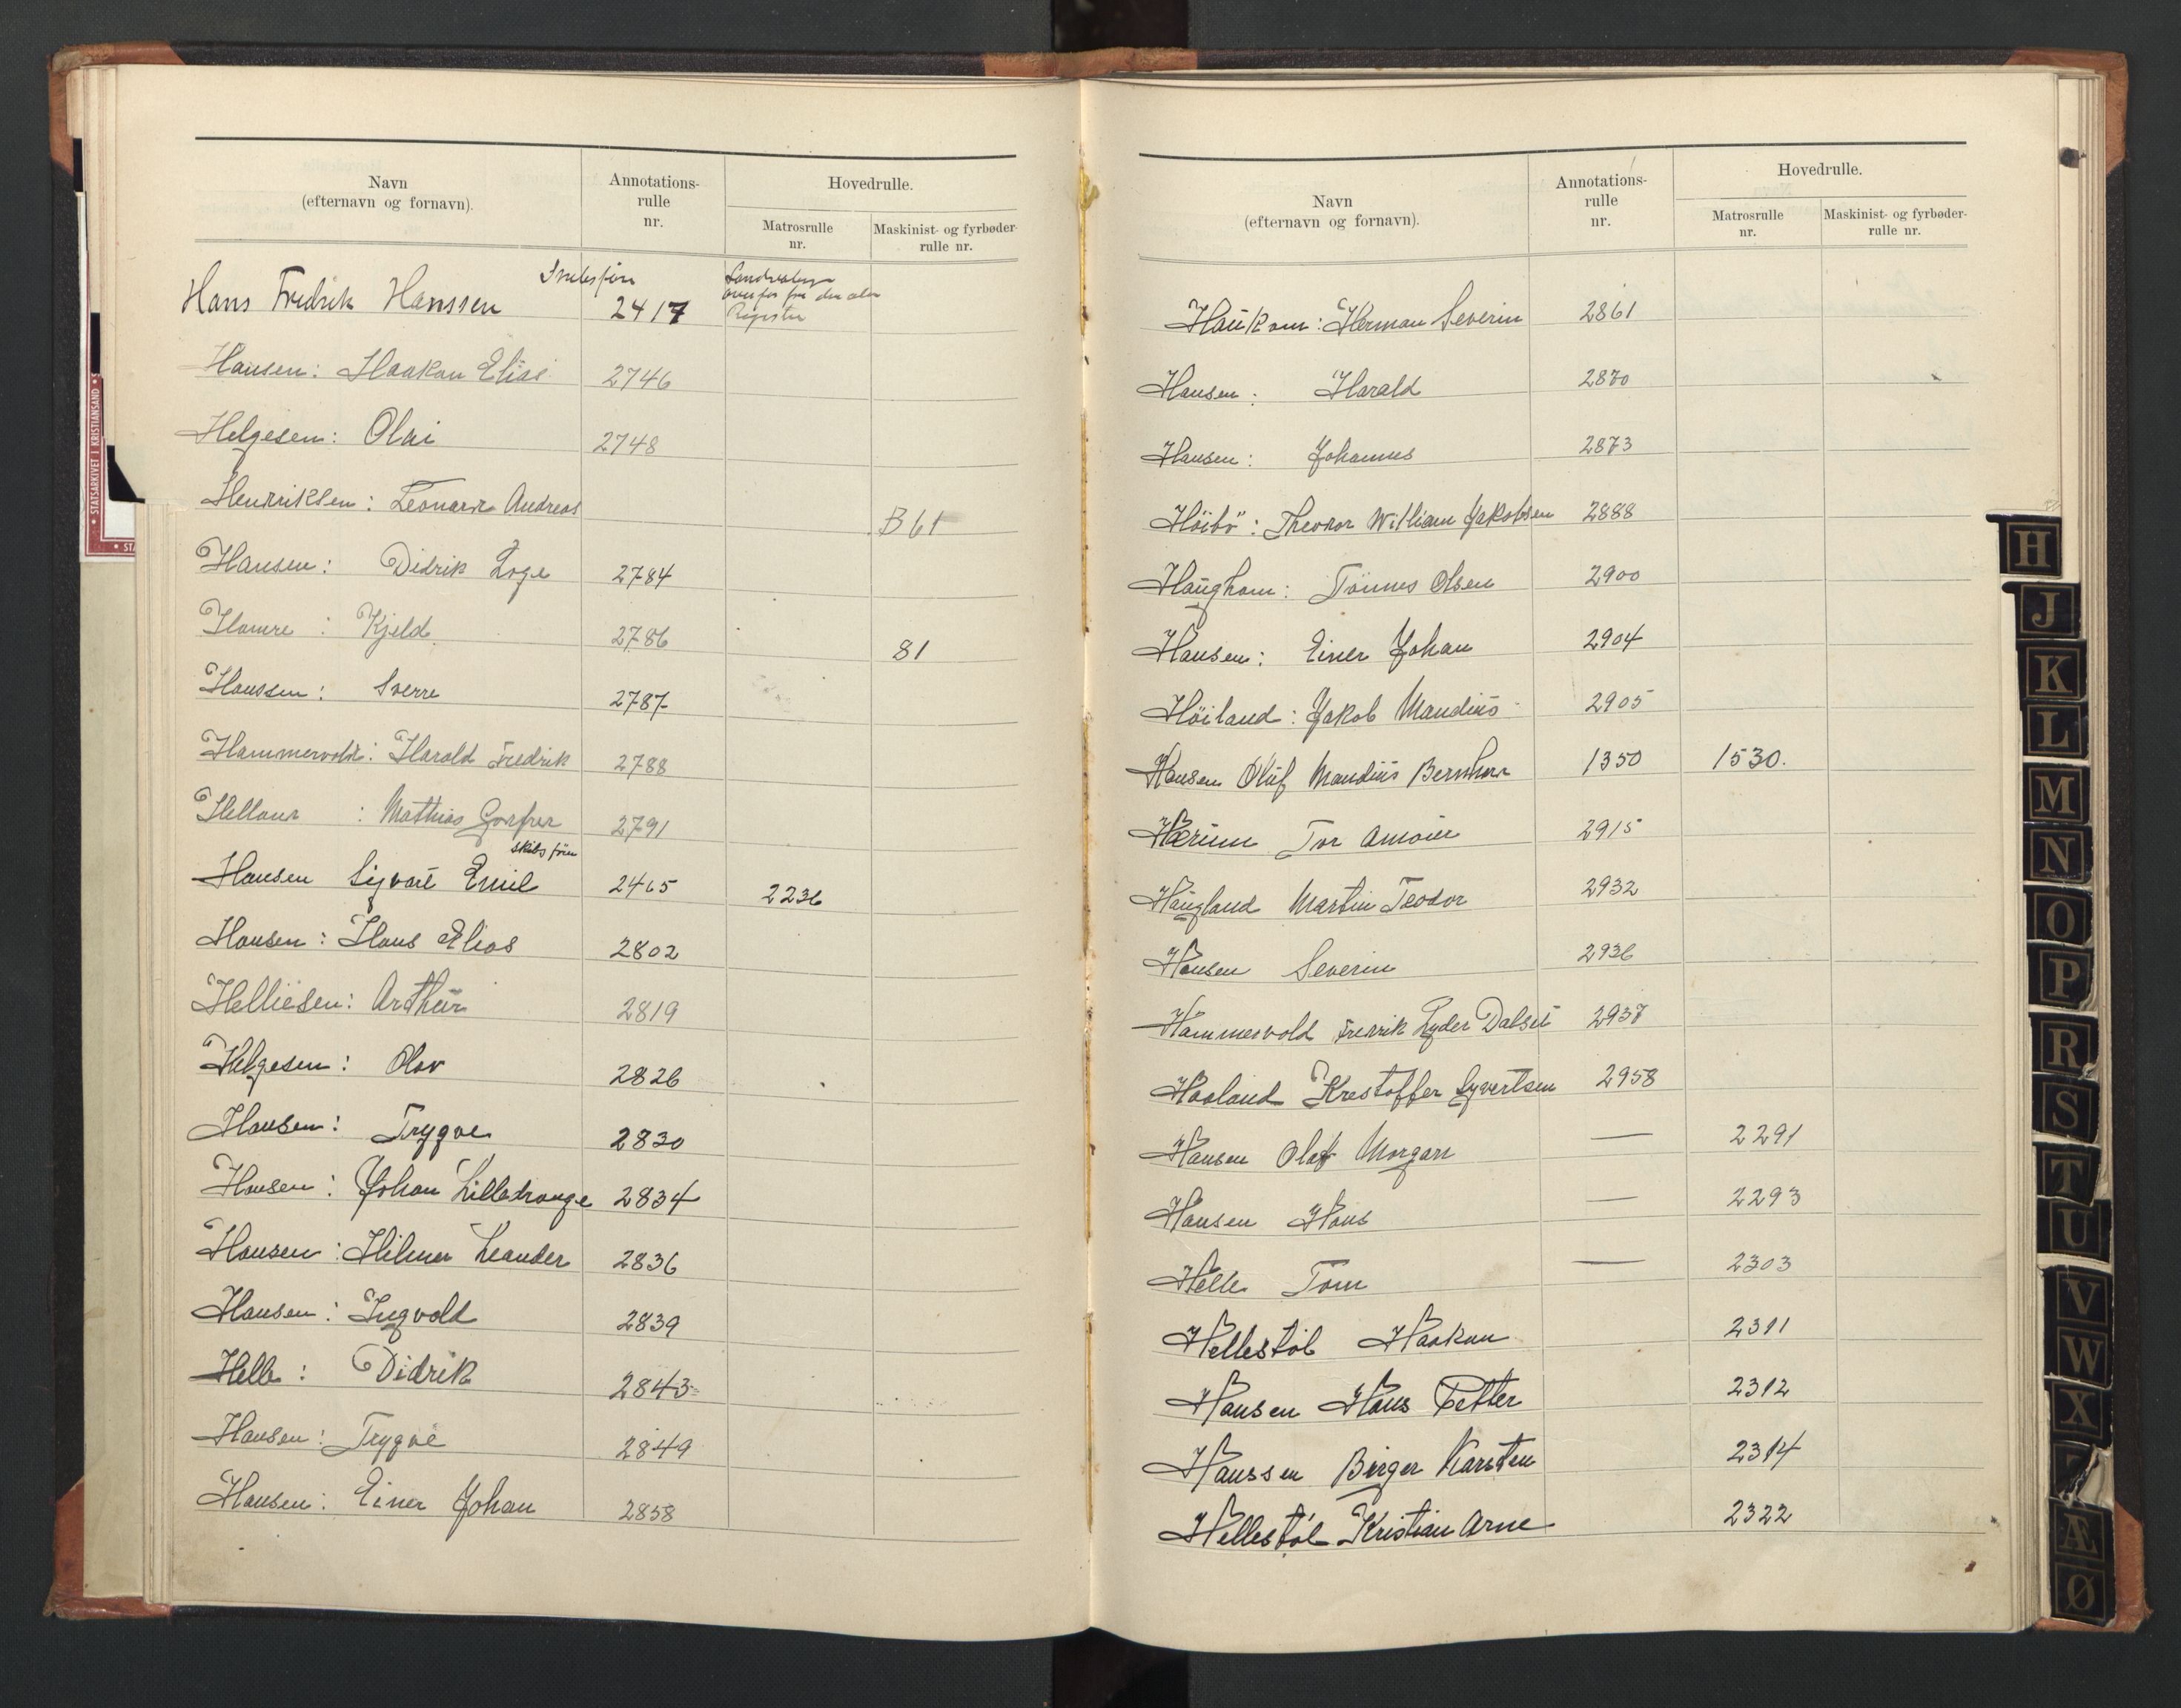 Navn
(efternavn og fornavn).
Annotations-
rulle
nr.
Hovedrulle.
Matrosrulle
nr.
Maskinist- og fyrbøder-
rulle nr.
Hans Fredrik Hanssen 2417
Register
Hansen: Haakon Elias 2746
Helgesen: Olai 2748
Henriksen: Leonard Andreas B 61
Hansen: Didrik Loge 2784
Hamre: Kjeld 2786 81
Hanssen: Sverre 2787
Hammervold: Harald Fredrik 2788
Helland: Mathias 2791
skibsfører
Hansen Sigvart Emil 2465 2236
Hansen: Hans Elias 2802
Helliesen: Arthur 2819
Helgesen: Olav 2826
Hansen: Trygve 2830
Hansen: Johan Lilledrange 2834
Hansen: Hilmer Leander 2836
Hansen: Ingvald 2839
Helle: Didrik 2843
Hansen: Trygve 2849
Hansen: Einer Johan 2858
Navn
(efternavn og fornavn).
Annotations-
rulle
nr.
Hovedrulle.
Matrosrulle
nr.
Maskinist- og fyrbøder-
rulle nr.
Haukom: Herman Severin 2861
Hansen: Harald 2870
Hansen: Johannes 2873
Höibö: Theodor William Jakobsen 2888
Haughom: Tönnes Olsen 2900
Hansen: Einer Johan 2904
Höiland: Jakob Mandius 2905
Hansen Oluf Mandius Bernhard 1350 1530.
Hærum Tor 2915
Haugland Martin Teodor 2932
Hansen Severin 2936
Hammervold Fredrik Lyder Dalset 2937
Haaland Krestoffer Syvertsen 2958
Hansen Olaf Morgan — 2291
Hansen Hans — 2293
Helle Tom — 2303
Hellestöl Haakon 2311
Hansen Hans Petter 2312
Hanssen Birger Karsten 2314
Hellestöl Kristian Arne 2322
STATSARKIVET I KRISTIANSAND
H
J
K
L
M
N
O
P
R
S
T
U
V
W
X
Æ
Ø